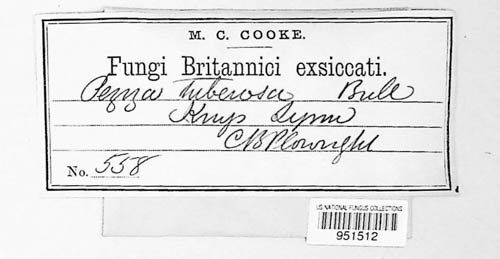 M. C. COOKE.
Fungi Britannici exsiccati.
Peziza tuberosa Bull
Kings Lynn
CBPlowright
No. 558
US NATIONAL FUNGUS COLLECTIONS
951512